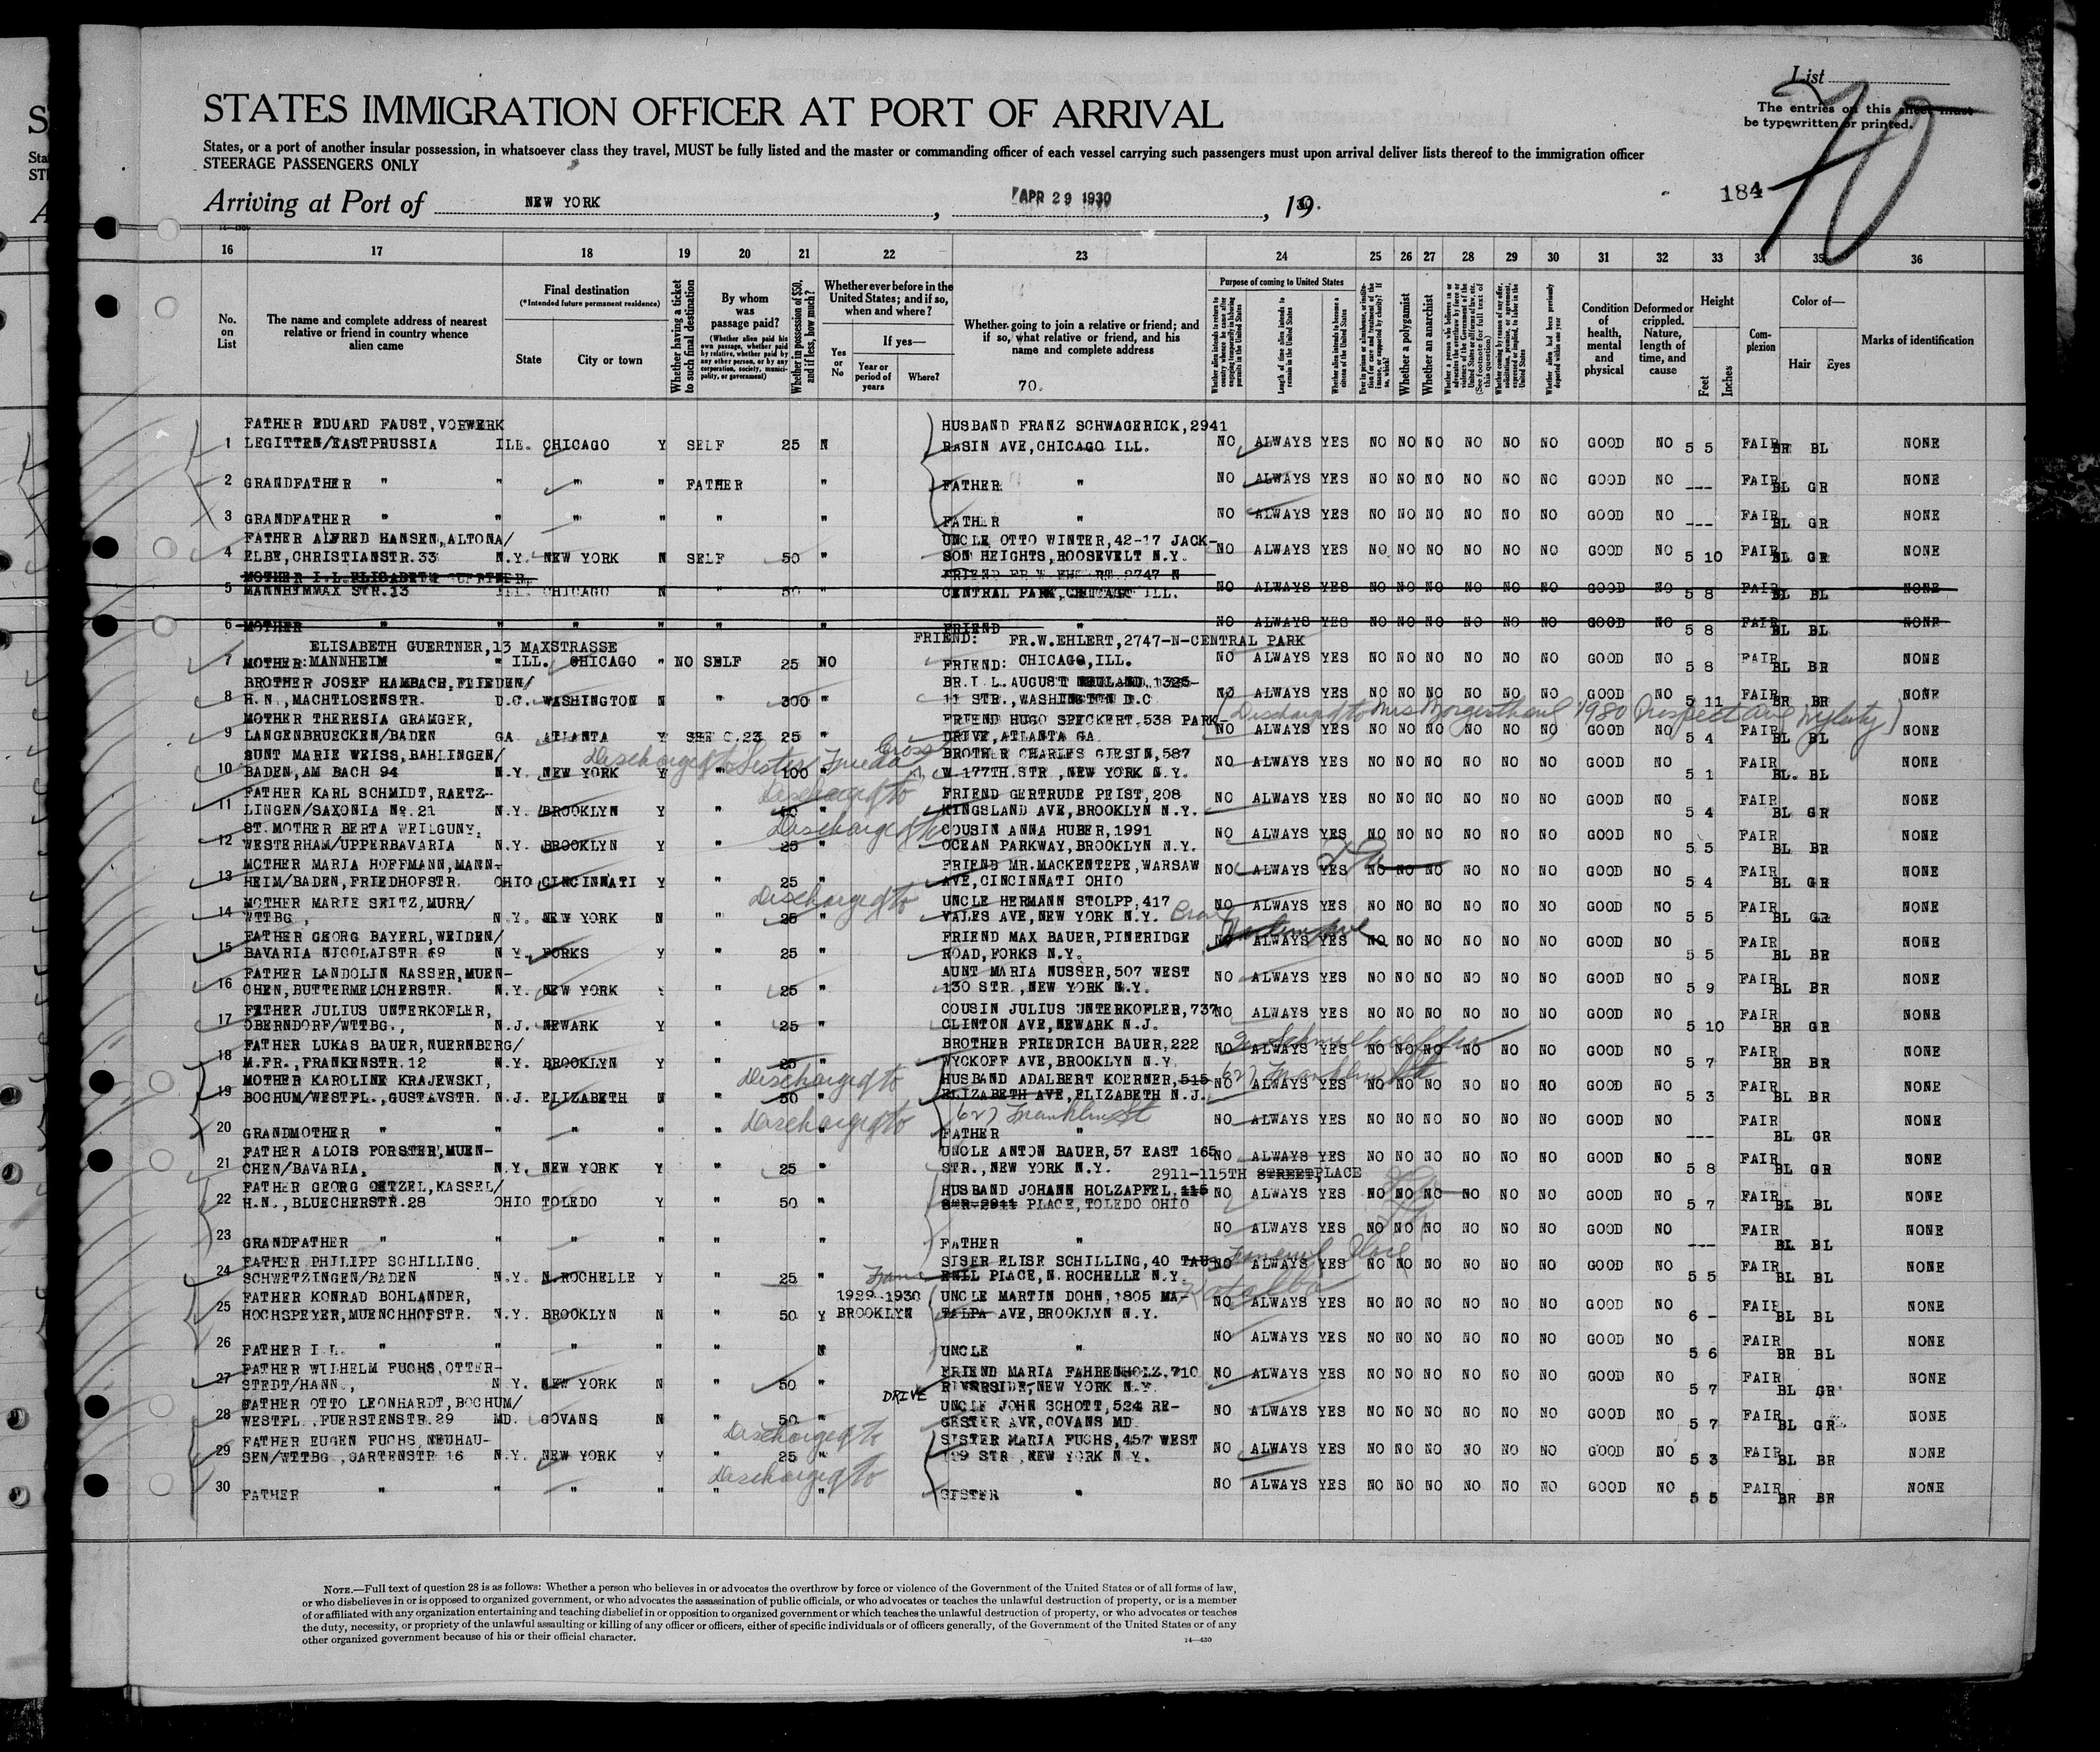 List
STATES IMMIGRATION OFFICER AT PORT OF ARRIVAL
The entries on this sheet must
be typewritten or printed.
States, or a port of another insular possession, in whatsoever class they travel, MUST be fully listed and the master or commanding officer of each vessel carrying such passengers must upon arrival deliver lists thereof to the immigration officer
STEERAGE PASSENGERS ONLY
184 70
Arriving at Port of NEW YORK, APR 29 1930, 19 30.
16 17 18 19 20 21 22 23 24 25 26 27 28 29 30 31 32 33 34 35 36
No. on List
The name and complete address of nearest relative or friend in country whence alien came
Final destination
(*Intended future permanent residence)
State City or town
Whether having a ticket to such final destination
By whom was passage paid?
(Whether alien paid his own passage, whether paid by relative, whether paid by any other person, or by any corporation, society, municipality, or government)
Whether in possession of $50, and if less, how much?
Whether ever before in the United States; and if so, when and where?
Yes or No
If yes—
Year or period of years
Where?
Whether going to join a relative or friend; and if so, what relative or friend, and his name and complete address
70.
Purpose of coming to United States
Length of time alien intends to remain in the United States
Whether a polygamist
Whether an anarchist
Condition of health, mental and physical
Deformed or crippled. Nature, length of time, and cause
Height
Feet Inches
Complexion
Color of—
Hair Eyes
Marks of identification
FATHER EDUARD FAUST, VORWERK HUSBAND FRANZ SCHWAGERICK, 2941
1 LEGITTEN/EASTPRUSSIA ILL. CHICAGO Y SELF 25 N RASIN AVE, CHICAGO ILL. NO ALWAYS YES NO NO NO NO NO NO GOOD NO 5 5 FAIR BR BL NONE
2 GRANDFATHER " " " " FATHER " FATHER " NO ALWAYS YES NO NO NO NO NO NO GOOD NO --- FAIR BL GR NONE
3 GRANDFATHER " " " " " " FATHER " NO ALWAYS YES NO NO NO NO NO NO GOOD NO --- FAIR BL GR NONE
FATHER ALFRED HANSEN, ALTONA/ UNCLE OTTO WINTER, 42-17 JACK-
4 ELBE, CHRISTIANSTR. 33 N.Y. NEW YORK N SELF 50 " SON HEIGHTS, ROOSEVELT N.Y. NO ALWAYS YES NO NO NO NO NO NO GOOD NO 5 10 FAIR BL GR NONE
MOTHER I.L. ELISABETH GUERTNER, FRIEND FR.W. EHLERT, 2747 N
5 MANNHEIMMAX STR. 13 ILL. CHICAGO N " 50 " CENTRAL PARK, CHICAGO ILL. NO ALWAYS YES NO NO NO NO NO NO GOOD NO 5 8 FAIR BL BL NONE
6 MOTHER " " " " " " FRIEND " NO ALWAYS YES NO NO NO NO NO NO GOOD NO 5 8 FAIR BL BL NONE
ELISABETH GUERTNER, 13 MAXSTRASSE FRIEND: FR.W. EHLERT, 2747-N-CENTRAL PARK
7 MOTHER: MANNHEIM " ILL. CHICAGO " NO SELF 25 NO FRIEND: CHICAGO, ILL. NO ALWAYS YES NO NO NO NO NO NO GOOD NO 5 8 FAIR BL BR NONE
BROTHER JOSEF HAMBACH, FLIEDEN/ BR. I.L. AUGUST 1325-
8 H.N., MACHTLOSENSTR. D.C. WASHINGTON N " 300 " 11 STR., WASHINGTON D.C NO ALWAYS YES NO NO NO NO NO NO GOOD NO 5 11 FAIR BR BR NONE
(Discharged to Mrs Morgenthaul 1980 Prospect Ave )
MOTHER THERESIA GRAMGER, FRIEND HUGO SPECKERT, 538 PARK-
9 LANGENBRUECKEN/BADEN GA ATLANTA Y SEE C.23 25 " DRIVE, ATLANTA GA NO ALWAYS YES NO NO NO NO NO NO GOOD NO 5 4 FAIR BL BL NONE
Discharged to Sister Frieda Gross
SUNT MARIE WEISS, BAHLINGEN/ BROTHER CHARLES GIESIN, 587
10 BADEN, AM BACH 94 N.Y. NEW YORK Y " 100 " W. 177TH. STR., NEW YORK N.Y. NO ALWAYS YES NO NO NO NO NO NO GOOD NO 5 1 FAIR BL. BL NONE
Discharged to
FATHER KARL SCHMIDT, RAETZ- FRIEND GERTRUDE PEIST, 208
11 LINGEN/SAXONIA No. 21 N.Y. BROOKLYN Y " 50 " KINGSLAND AVE, BROOKLYN N.Y. NO ALWAYS YES NO NO NO NO NO NO GOOD NO 5 4 FAIR BL GR NONE
Discharged to
ST. MOTHER BERTA WEILGUNY, COUSIN ANNA HUBER, 1991
12 WESTERHAM/UPPERBAVARIA N.Y. BROOKLYN Y " 25 " OCEAN PARKWAY, BROOKLYN N.Y. NO ALWAYS YES NO NO NO NO NO NO GOOD NO 5 5 FAIR BL BR NONE
MOTHER MARIA HOFFMANN, MANN- FRIEND MR. MACKENTEPE, WARSAW
13 HEIM/BADEN, FRIEDHOFSTR. OHIO CINCINNATI Y " 25 " AVE, CINCINNATI OHIO NO ALWAYS YES NO NO NO NO NO NO GOOD NO 5 4 FAIR BL GR NONE
Discharged to
MOTHER MARIE SEITZ, MURR/ UNCLE HERMANN STOLPP, 417
14 WTTBG, N.Y. NEW YORK N " 25 " VALES AVE, NEW YORK N.Y. Bronx NO ALWAYS YES NO NO NO NO NO NO GOOD NO 5 5 FAIR BL GR NONE
FATHER GEORG BAYERL, WEIDEN/ FRIEND MAX BAUER, PINERIDGE
15 BAVARIA NICOLAISTR 69 N Y. FORKS Y " 25 " ROAD, FORKS N.Y. NO ALWAYS YES NO NO NO NO NO NO GOOD NO 5 5 FAIR BL BR NONE
FATHER LANDOLIN NASSER, MUEN- AUNT MARIA NUSSER, 507 WEST
16 CHEN, BUTTERMELCHERSTR. N.Y. NEW YORK " 25 " 130 STR., NEW YORK N.Y. NO ALWAYS YES NO NO NO NO NO NO GOOD NO 5 9 FAIR BL BR NONE
FATHER JULIUS UNTERKOFLER, COUSIN JULIUS UNTERKOFLER, 737
17 OBERNDORF/WTTBG., N.J. NEWARK Y " 25 " CLINTON AVE, NEWARK N.J. NO ALWAYS YES NO NO NO NO NO NO GOOD NO 5 10 FAIR BR GR NONE
FATHER LUKAS BAUER, NUERNBERG/ BROTHER FRIEDRICH BAUER, 222
18 M.FR., FRANKENSTR. 12 N.Y. BROOKLYN Y " 25 " WYCKOFF AVE, BROOKLYN N.Y. NO ALWAYS YES NO NO NO NO NO NO GOOD NO 5 7 FAIR BR BR NONE
Discharged to 627 Franklin St
MOTHER KAROLINE KRAJEWSKI, HUSBAND ADALBERT KOERNER, 515
19 BOCHUM/WESTFL., GUSTAVSTR. N.J. ELIZABETH N " 50 " ELIZABETH AVE, ELIZABETH N.J. NO ALWAYS YES NO NO NO NO NO NO GOOD NO 5 3 FAIR BL BR NONE
Discharged to 627 Franklin St
20 GRANDMOTHER " " " " " " FATHER " NO ALWAYS YES NO NO NO NO NO NO GOOD NO --- FAIR BL GR NONE
FATHER ALOIS FORSTER, MUEN- UNCLE ANTON BAUER, 57 EAST 165
21 CHEN/BAVARIA, N.Y. NEW YORK Y " 25 " STR., NEW YORK N.Y. NO ALWAYS YES NO NO NO NO NO NO GOOD NO 5 8 FAIR BL GR NONE
2911-115TH STREET, PLACE
FATHER GEORG OETZEL, KASSEL/ HUSBAND JOHANN HOLZAPFEL, 115
22 H.N., BLUECHERSTR. 28 OHIO TOLEDO Y 50 " STR 2911 PLACE, TOLEDO OHIO NO ALWAYS YES NO NO NO NO NO NO GOOD NO 5 7 FAIR BL BL NONE
23 GRANDFATHER " " " " " " FATHER " NO ALWAYS YES NO NO NO NO NO NO GOOD NO --- FAIR BL BL NONE
FATHER PHILIPP SCHILLING SISER ELISE SCHILLING, 40 TAU- Place
24 SCHWETZINGEN/BADEN N.Y. N. ROCHELLE Y " 25 " ENIL PLACE, N. ROCHELLE N.Y. NO ALWAYS YES NO NO NO NO NO NO GOOD NO 5 5 FAIR BL BL NONE
FATHER KONRAD BOHLANDER, 1929-1930 UNCLE MARTIN DOHN, 1805 MA-
25 HOCHSPEYER, MUENCHHOFSTR. N.Y. BROOKLYN N " 50 Y BROOKLYN TALPA AVE, BROOKLYN N.Y. NO ALWAYS YES NO NO NO NO NO NO GOOD NO 6 - FAIR BL BL NONE
26 FATHER I.L. " " " " " N UNCLE " NO ALWAYS YES NO NO NO NO NO NO GOOD NO 5 6 FAIR BR BL NONE
FATHER WILHELM FUCHS, OTTER- FRIEND MARIA FAHRENHOLZ, 710
27 STEDT/HANN., N Y. NEW YORK N " 50 " RIVERSIDE, NEW YORK N.Y. NO ALWAYS YES NO NO NO NO NO NO GOOD NO 5 7 FAIR BL GR NONE
DRIVE
FATHER OTTO LEONHARDT, BOCHUM/ UNCLE JOHN SCHOTT, 524 RE-
28 WESTFL., FUERSTENSTR. 29 MD. GOVANS N " 50 " GESTER AVE, GOVANS MD NO ALWAYS YES NO NO NO NO NO NO GOOD NO 5 7 FAIR BL GR NONE
Discharged to
FATHER EUGEN FUCHS, NEUHAU- SISTER MARIA FUCHS, 457 WEST
29 SEN/WTTBG, GARTENSTR 16 N.Y. NEW YORK Y " 25 " STR, NEW YORK N Y. NO ALWAYS YES NO NO NO NO NO NO GOOD NO 5 3 FAIR BL BR NONE
Discharged to
30 FATHER " " " " " " SISTER " NO ALWAYS YES NO NO NO NO NO NO GOOD NO 5 5 FAIR BR BR NONE
NOTE.—Full text of question 28 is as follows: Whether a person who believes in or advocates the overthrow by force or violence of the Government of the United States or of all forms of law,
or who disbelieves in or is opposed to organized government, or who advocates the assassination of public officials, or who advocates or teaches the unlawful destruction of property, or is a member
of or affiliated with any organization entertaining and teaching disbelief in or opposition to organized government or which teaches the unlawful destruction of property, or who advocates or teaches
the duty, necessity, or propriety of the unlawful assaulting or killing of any officer or officers, either of specific individuals or of officers generally, of the Government of the United States or of any
other organized government because of his or their official character.
14—430